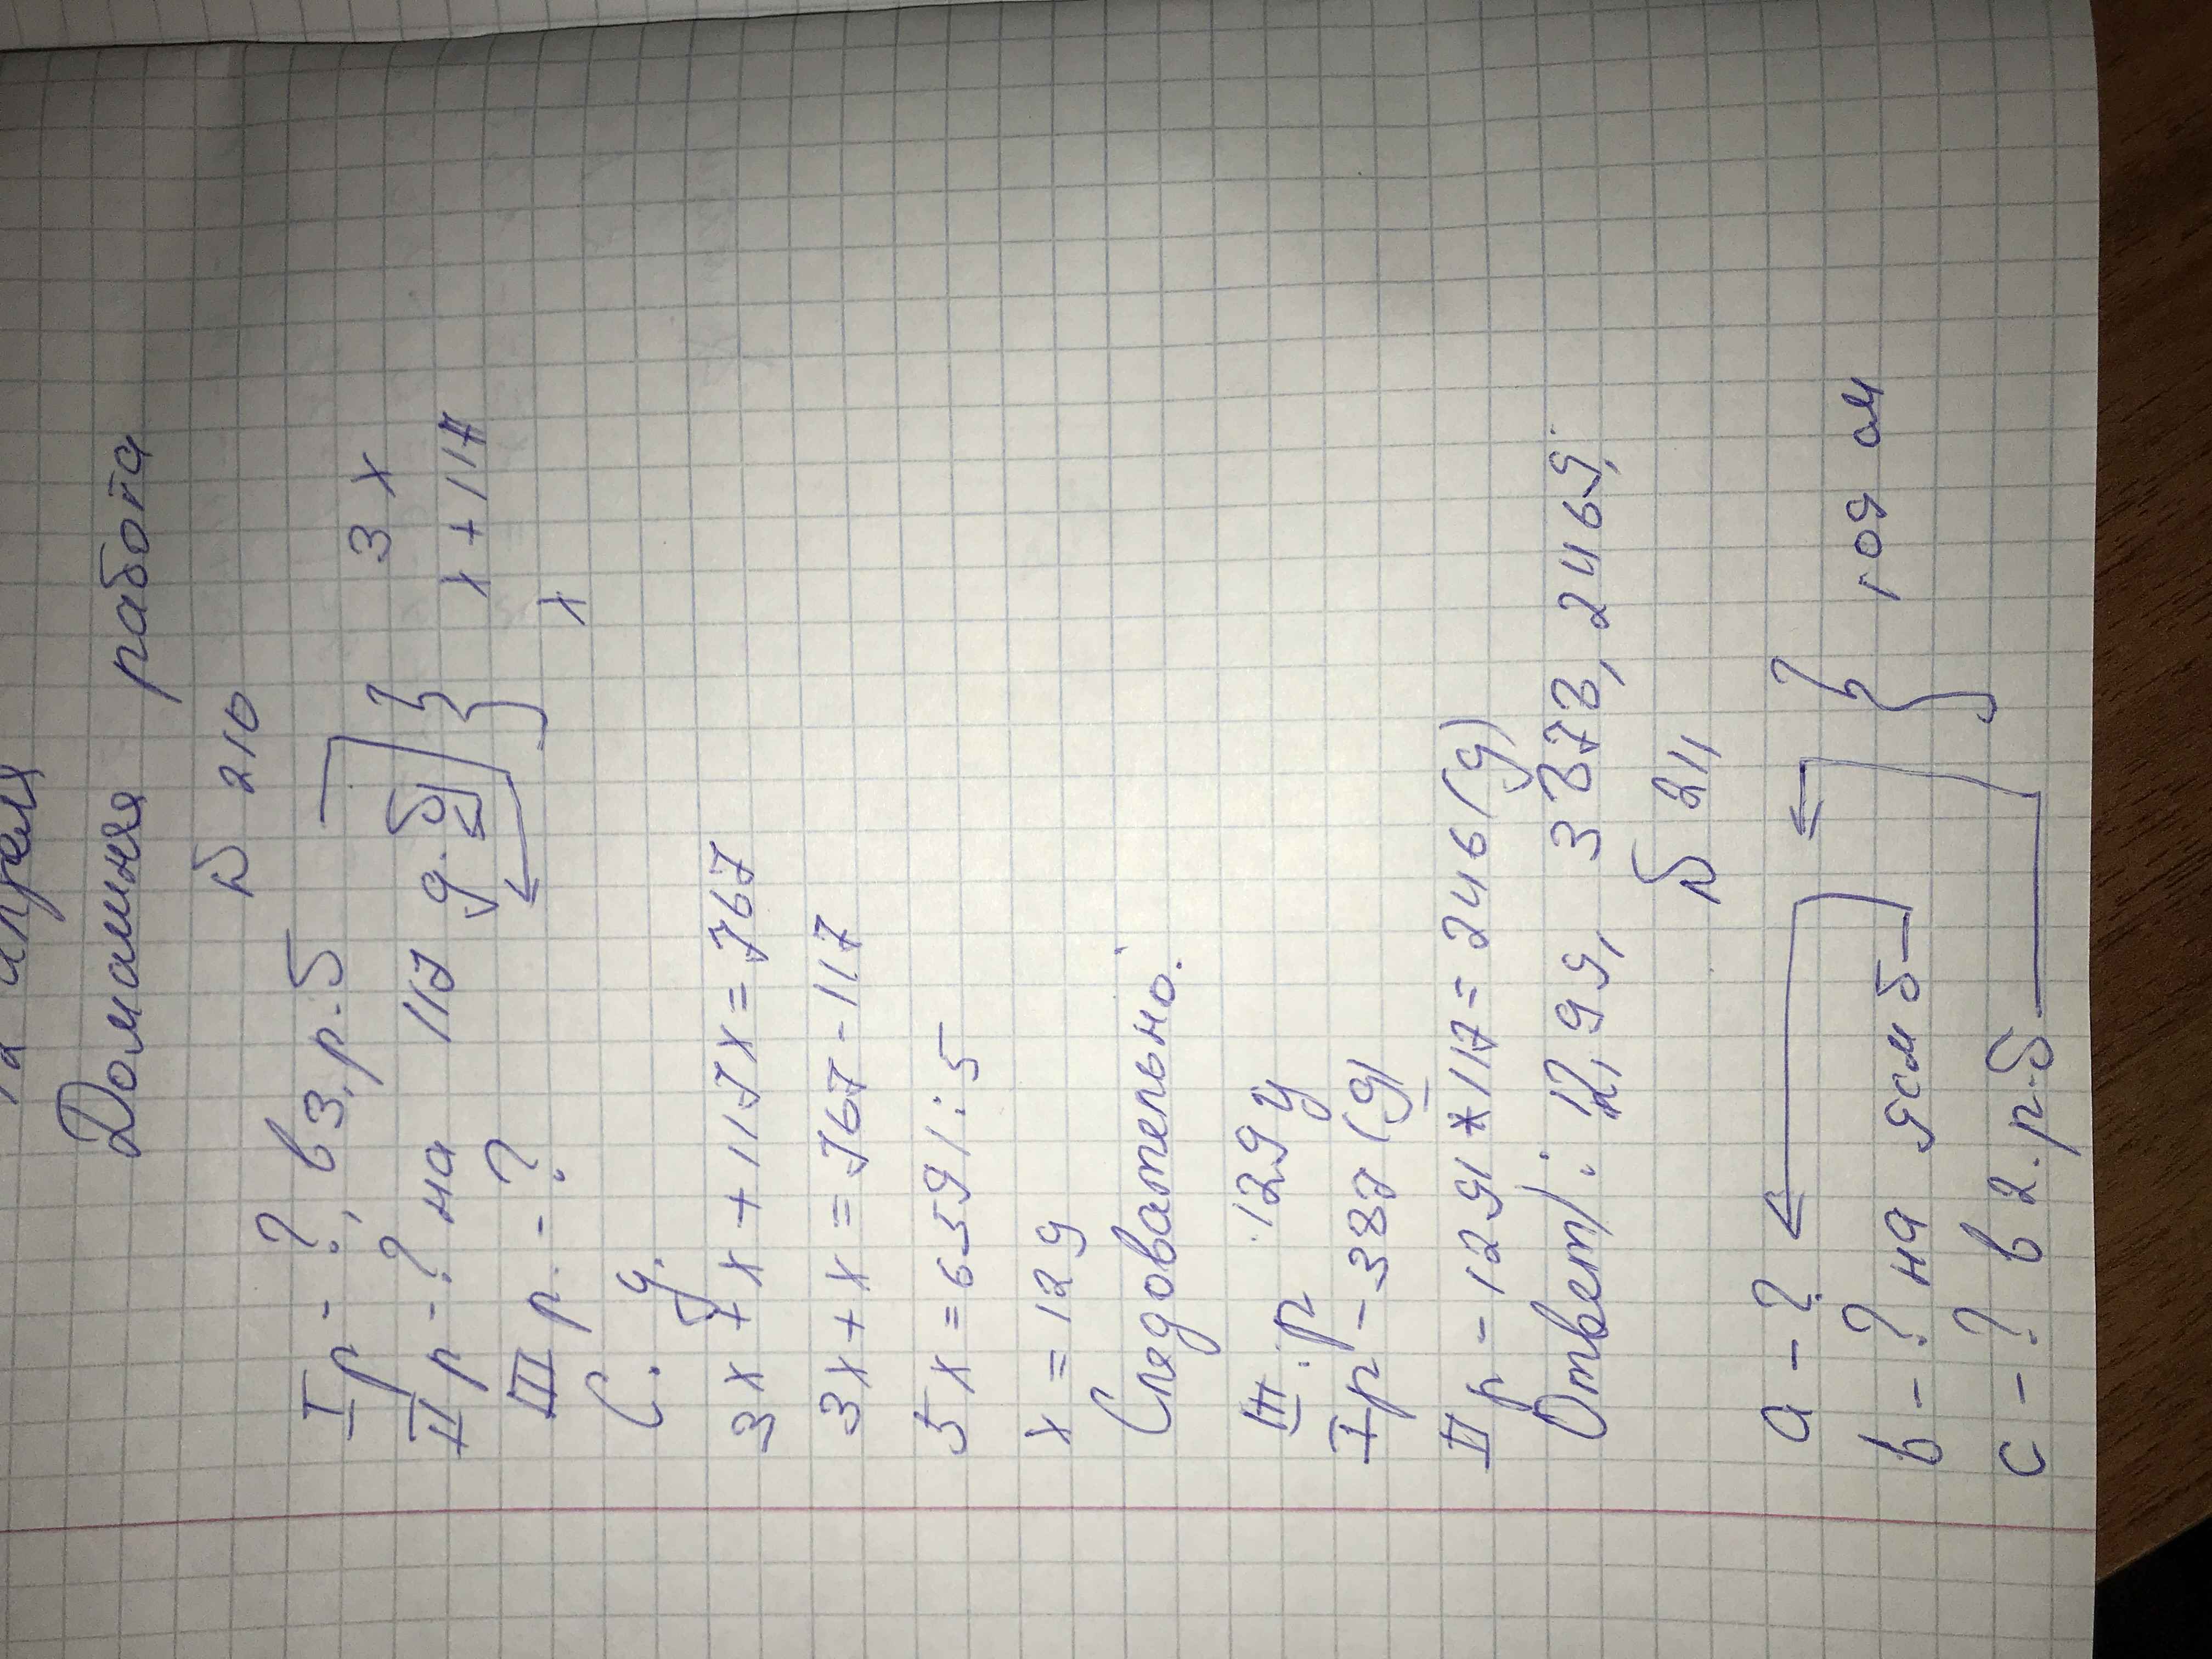 апреля
Домашняя работа
№ 210
I р - ?, в 3. р. б 3x
II р - ? на 117 д. б x + 117
III р. - ? x
С. У.
3x + x + 117 x = 767
3x + x = 767 - 117
5x = 659 / : 5
x = 129
Следовательно:
III р 129 д
I р - 387 (д)
II р - 129 + 117 = 246 (д)
Ответ: 129, 387, 246
№ 211
a - ?
b - ? на 7см б 109 см
c - ? в 2. р. б